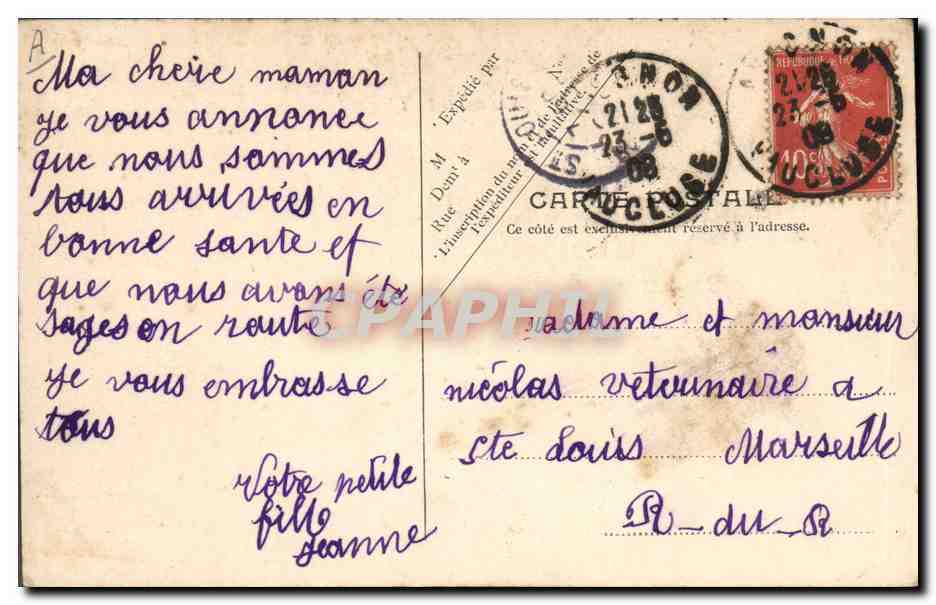 A
Ma chere maman
je vous annonce
que nous sommes
tous arrivées en
bonne sante et
que nous avons été
sages en route
je vous embrasse
tous
votre petite
fille
jeanne
Expédié par
M
Demt à
Rue
N°
L'inscription du nom et de l'adresse de
l'expéditeur est
21 25
23 -6
08
VAUCLUSE
RÉPUBLIQUE
10
21 25
23 -6
08
VAUCLUSE
CARTE POSTALE
Ce côté est exclusivement réservé à l'adresse.
CPAPHIL
madame et monsieur
nicolas veterinaire a
Ste Louis Marseille
R-du-R